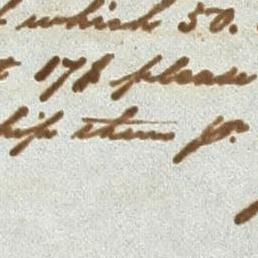 which 50.
178 please
ship them pr.